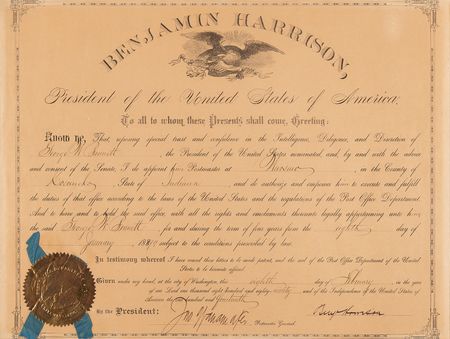 BENJAMIN HARRISON,
President of the United States of America,
To all to whom these Presents shall come, Greeting:
Know ye, That, reposing special trust and confidence in the Intelligence, Diligence, and Discretion of
George W. , the President of the United States nominated, and, by and with the advice
and consent of the Senate, I do appoint him Postmaster at Warsaw, in the County of
Kosciusko, State of Indiana, and do authorize and empower him to execute and fulfill
the duties of that office according to the laws of the United States and the regulations of the Post Office Department.
And to have and to hold the said office, with all the rights and emoluments thereunto legally appertaining unto him
the said George W. for and during the term of four years from the eighth day of
January 18 , subject to the conditions prescribed by law.
In testimony whereof I have caused these letters to be made patent, and the seal of the Post Office Department of the United
States to be hereunto affixed.
Given under my hand, at the city of Washington, the eighth day of February, in the year
of our Lord one thousand eight hundred and eighty ninety and of the Independence of the United States of
America the one hundred and fourteenth
By the President: Jno Wanamaker Benj Harrison
Postmaster General.